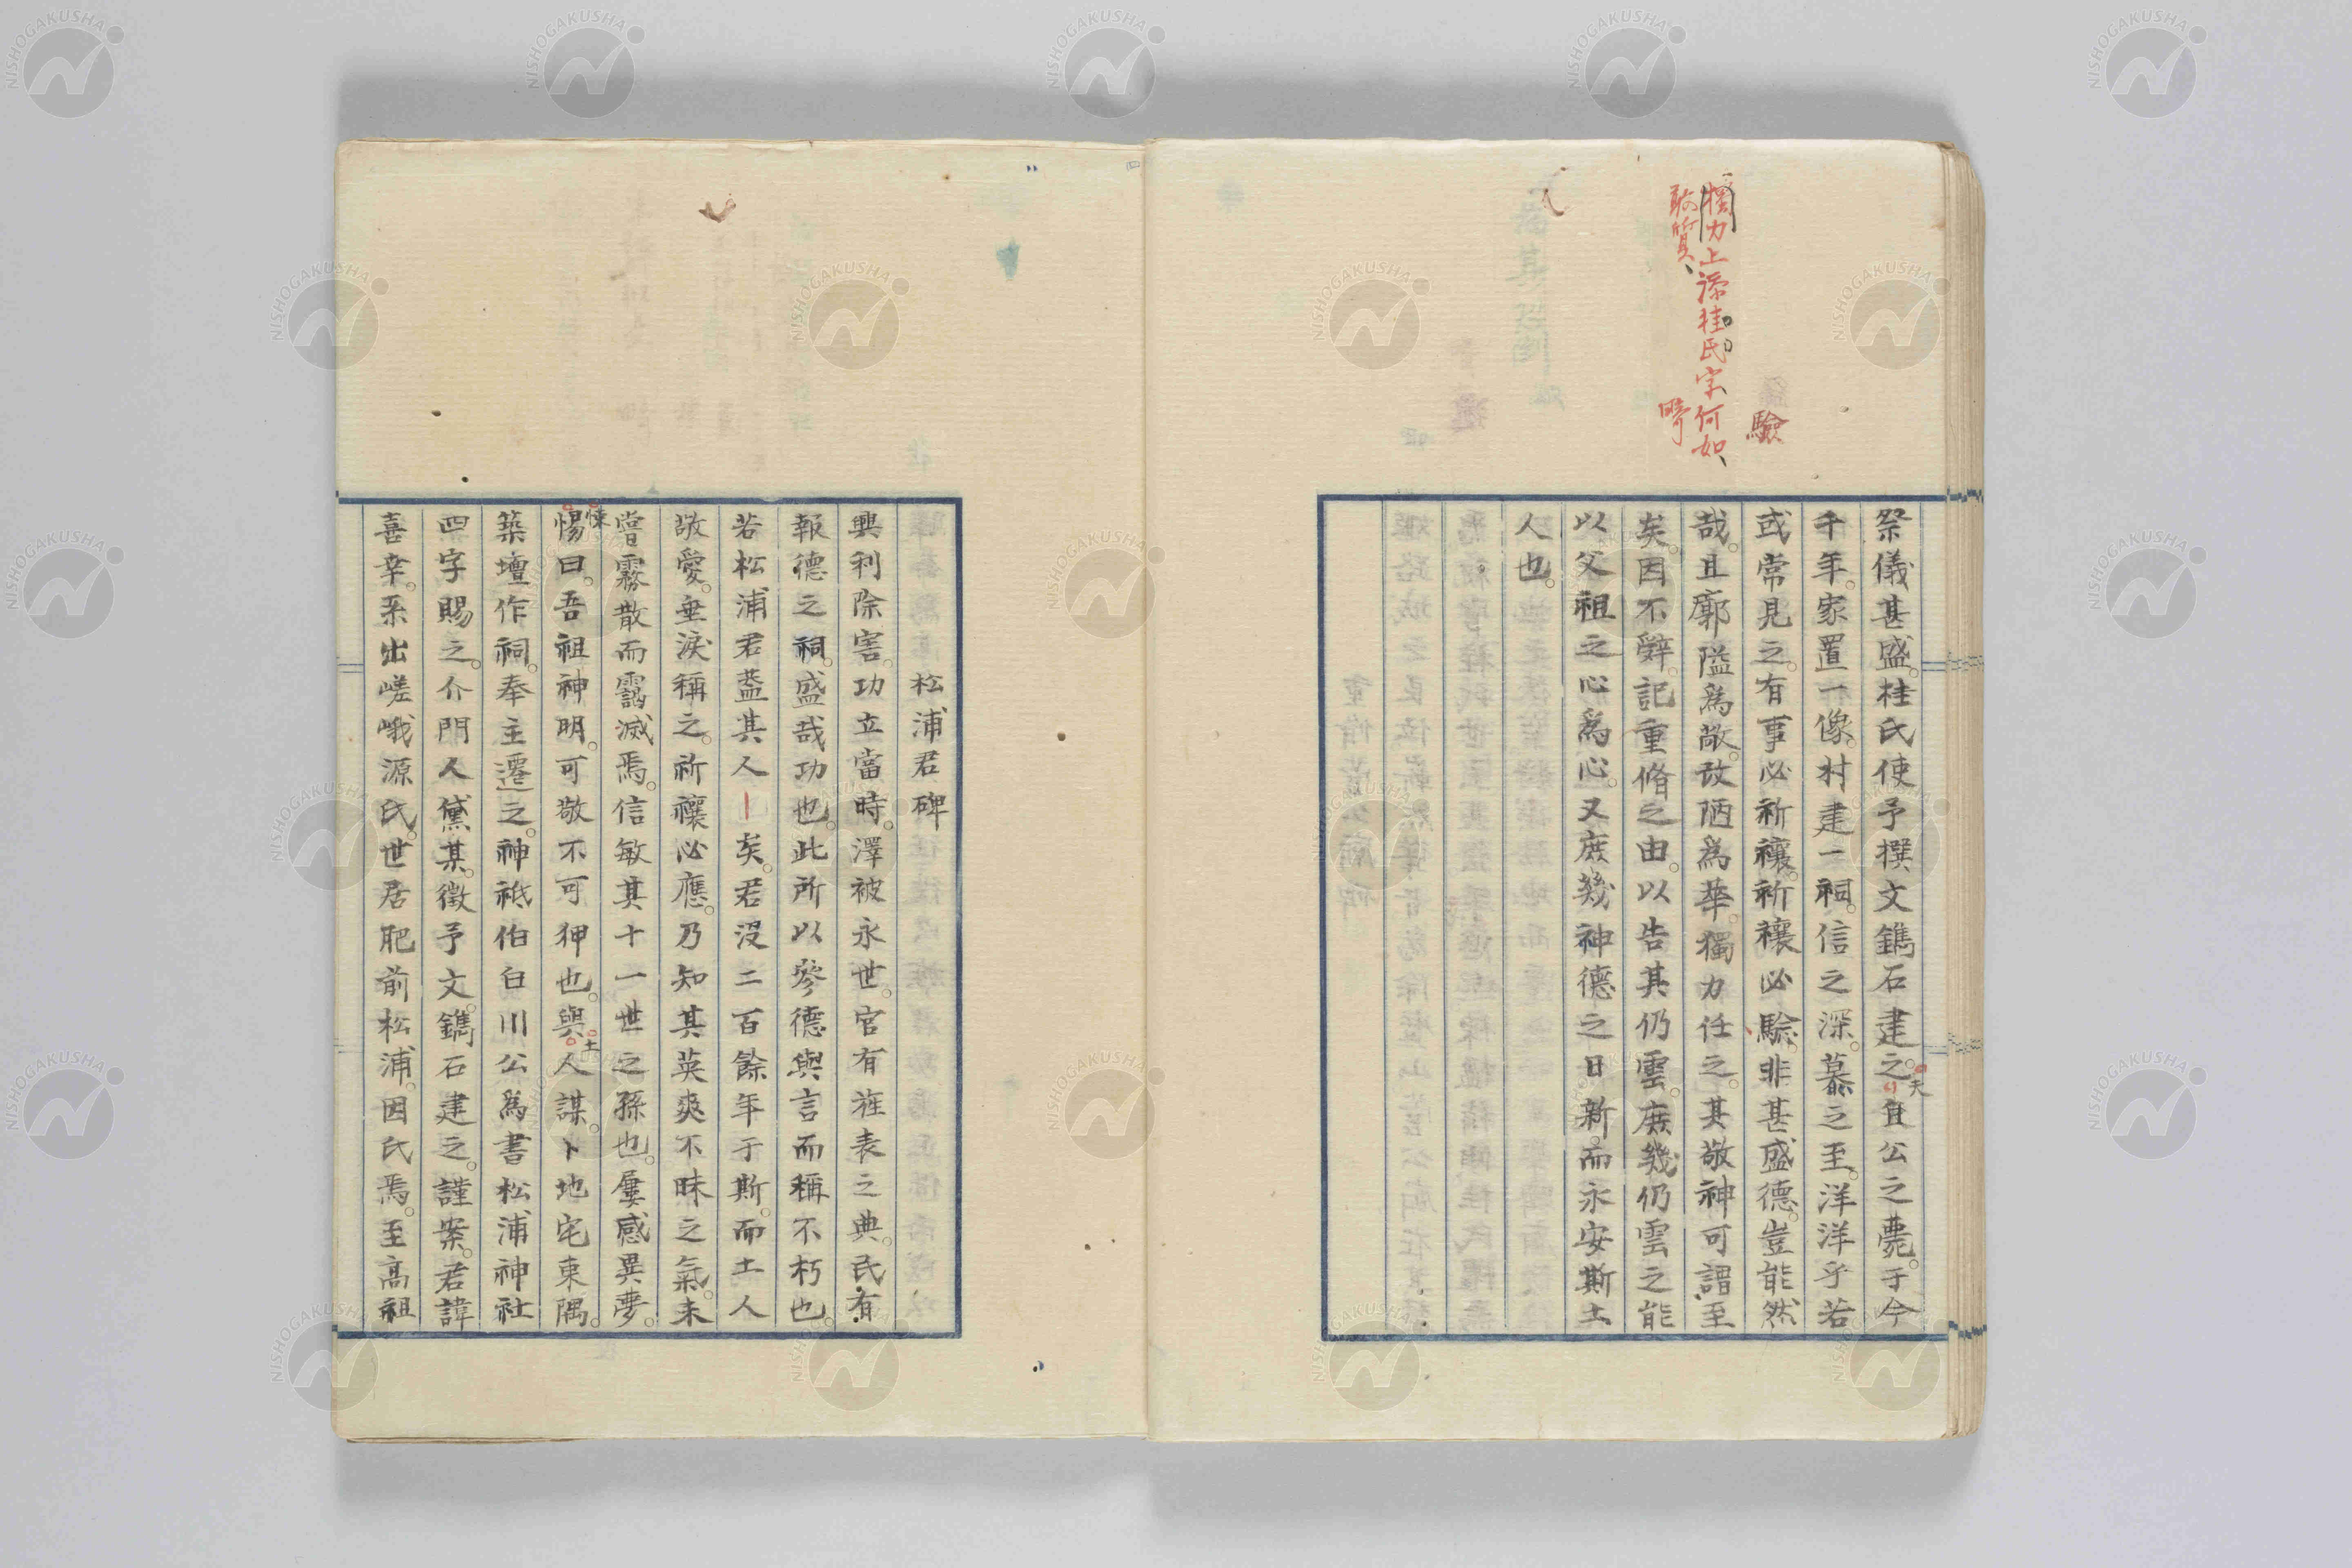 驗
獨力上添桂氏字何如
敢質、
畸
祭儀甚盛。桂氏使予撰文鐫石建之。夫且公之薨。于今
千年。家置一像。村建一祠。信之深。慕之至。洋洋乎若
或常見之。有事必祈禳。祈禳必驗。非甚盛德。豈能然
哉。且廓隘爲敞。改陋爲華。獨力任之。其敬神可謂至
矣。因不辭。記重脩之由。以告其仍雲。庶幾仍雲之能
以父祖之心爲心。又庶幾神德之日新。而永安斯土
人也。
松浦君碑
興利除害。功立當時。澤被永世。官有旌表之典。民有
報德之祠。盛哉功也。此所以參德與言而稱不朽也
若松浦君蓋其人矣。君沒二百餘年于斯。而土人
敬愛。垂淚稱之。祈禳必應。乃知其英爽不昧之氣。未
嘗霧散而靄滅焉。信敏其十一世之孫也。屢感異夢。
悚惕曰。吾祖神明。可敬不可狎也。與土人謀。卜地宅東隅。
築壇作祠。奉主遷之。神祇伯白川公爲書松浦神社
四字賜之。介門人黛某。徵予文。鐫石建之。謹案。君諱
喜幸。系出嵯峨源氏。世居肥前松浦。因氏焉。至高祖
NISHOGAKUSHA